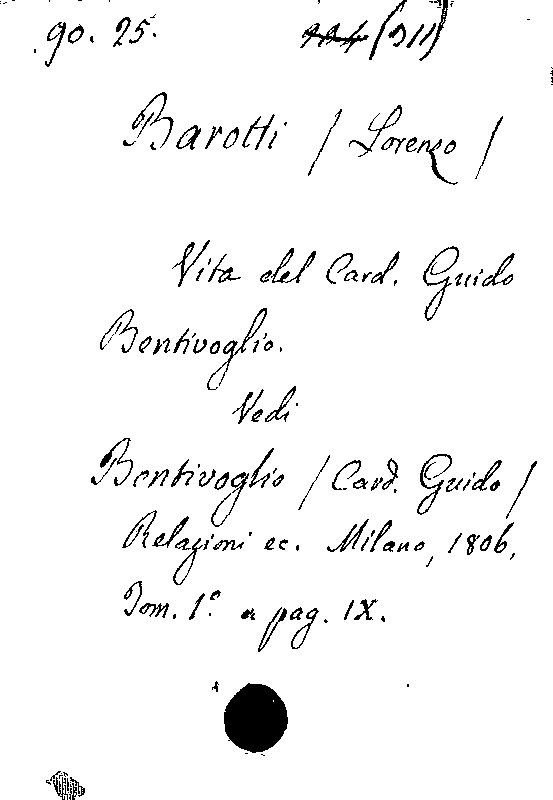 90. 25. 904 (311)
Barotti / Lorenzo /
Vita del Card. Guido
Bentivoglio.
Vedi
Bentivoglio / Card. Guido /
Relazioni ec. Milano, 1806,
Tom. 1º a pag. IX.